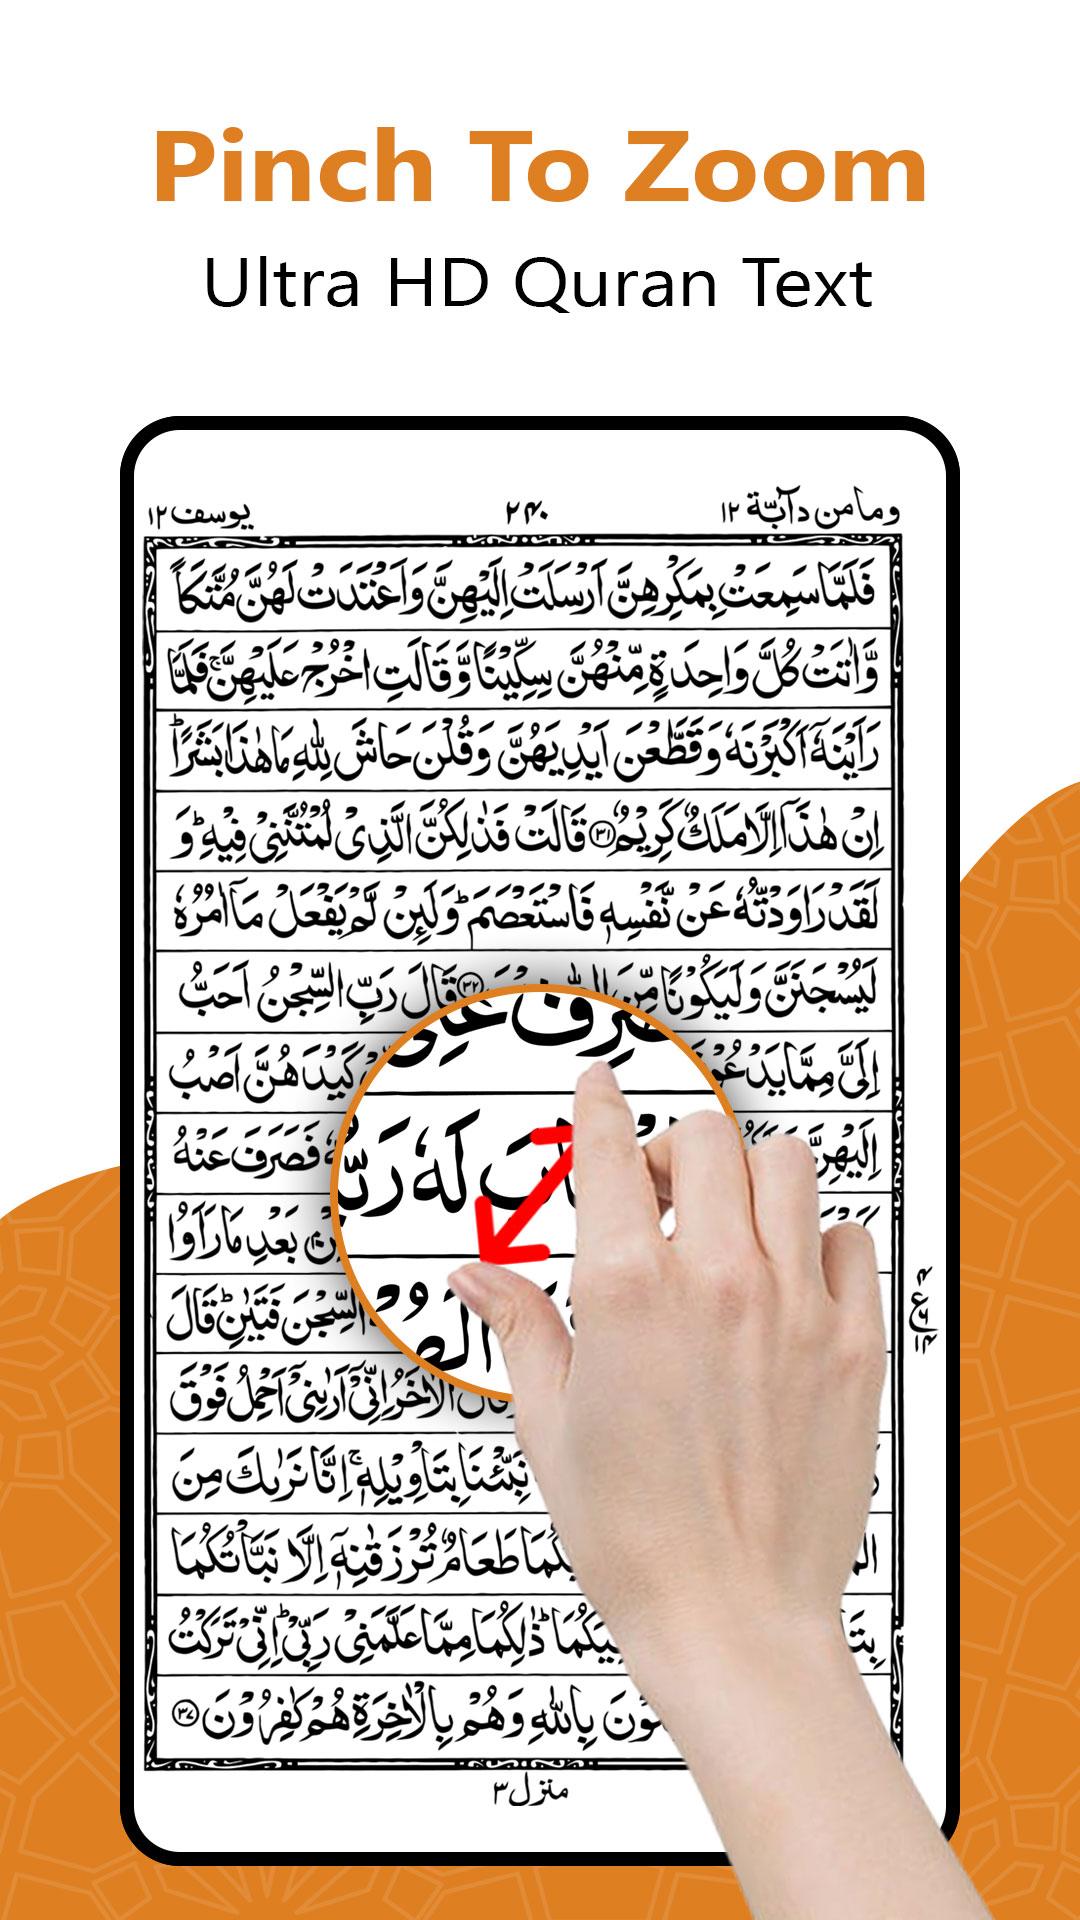 Pinch To Zoom
Ultra HD Quran Text
وما من دآبّة ۱۲
۲۴۰
یوسف ۱۲
فَلَمَّا سَمِعَتْ بِمَكْرِهِنَّ اَرْسَلَتْ اِلَيْهِنَّ وَاَعْتَدَتْ لَهُنَّ مُتَّكَاً
وَّاٰتَتْ كُلَّ وَاحِدَةٍ مِّنْهُنَّ سِكِّيْنًا وَّقَالَتِ اخْرُجْ عَلَيْهِنَّ ۚ فَلَمَّا
رَاَيْنَهٗۤ اَكْبَرْنَهٗ وَقَطَّعْنَ اَيْدِيَهُنَّ وَقُلْنَ حَاشَ لِلّٰهِ مَا هٰذَا بَشَرًا ؕ
اِنْ هٰذَاۤ اِلَّا مَلَكٌ كَرِيْمٌ ۳۱ قَالَتْ فَذٰلِكُنَّ الَّذِىْ لُمْتُنَّنِىْ فِيْهِ ؕ وَ
لَقَدْ رَاوَدْتُّهٗ عَنْ نَّفْسِهٖ فَاسْتَعْصَمَ ؕ وَلَئِنْ لَّمْ يَفْعَلْ مَاۤ اٰمُرُهٗ
لَيُسْجَنَنَّ وَلَيَكُوْنًا مِّنَ ۳۲ قَالَ رَبِّ السِّجْنُ اَحَبُّ
اِلَىَّ مِمَّا كَيْدَهُنَّ اَصْبُ
اِلَيْهِنَّ فَصَرَفَ عَنْهُ
بَعْدِ مَا رَاَوُا
السِّجْنَ فَتَيٰنِ ؕ قَالَ
الْاٰخَرُ اِنِّىْۤ اَرٰىنِىْۤ اَحْمِلُ فَوْقَ
نَبِّئْنَا بِتَاْوِيْلِهٖ ۚ اِنَّا نَرٰىكَ مِنَ
طَعَامٌ تُرْزَقٰنِهٖۤ اِلَّا نَبَّاْتُكُمَا
ذٰلِكُمَا مِمَّا عَلَّمَنِىْ رَبِّىْ ؕ اِنِّىْ تَرَكْتُ
بِاللّٰهِ وَهُمْ بِالْاٰخِرَةِ هُمْ كٰفِرُوْنَ ۳۷
لَهٗ
منزل ۳